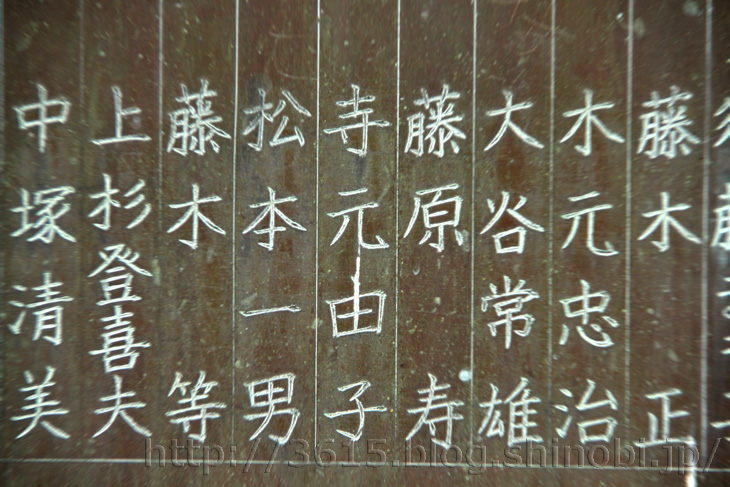 藤木正
木元忠治
大谷常雄
藤原寿
寺元由子
松本一男
藤木等
上杉登喜夫
中塚清美
http://3615.blog.shinobi.jp/